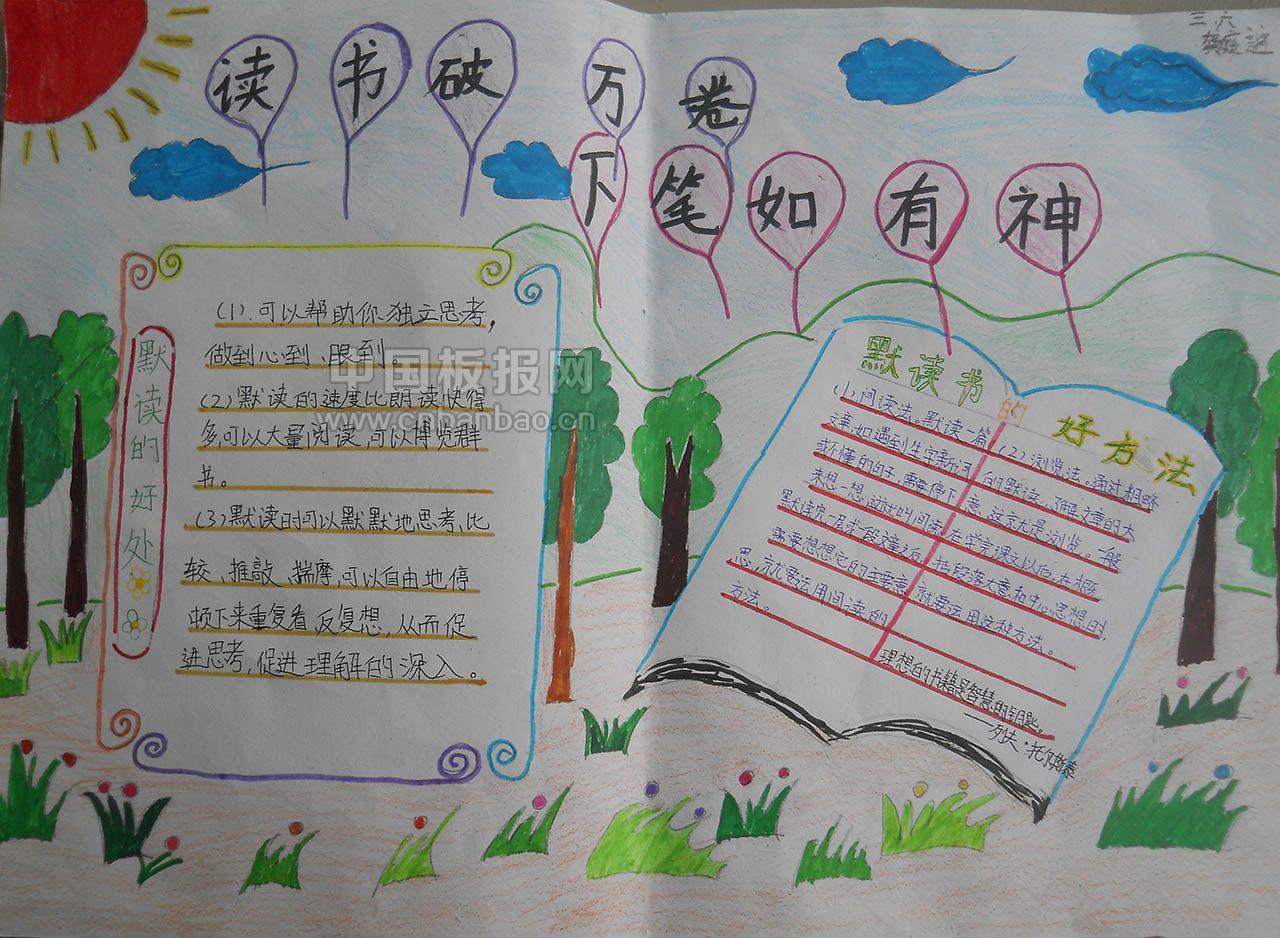 三、六
读书破万卷
下笔如有神
默读的好处
(1).可以帮助你独立思考,
做到心到、眼到。
(2)默读的速度比朗读快得
多,可以大量阅读,可以博览群
书。
(3)默读时可以默默地思考、比
较、推敲、揣摩,可以自由地停
顿下来重复看,反复想,从而促
进思考,促进理解的深入。
中国板报网
www.cnbanbao.cn
默读书的好方法
(1)问读法。默读一篇
文章,如遇到生字新词
或不懂的句子,需要停下
来想一想,这就叫问读。
默读完一层或一段文章之后,
需要想想它的主要意
思,就要运用问读的
方法。
(2)浏览法。通过粗略
的默读、了解文章的大
意,这就是浏览。一般
在学完课文以后,在概
括段落大意和中心思想时,
就要运用这种方法。
理想的书籍是智慧的钥匙。
——列夫·托尔斯泰